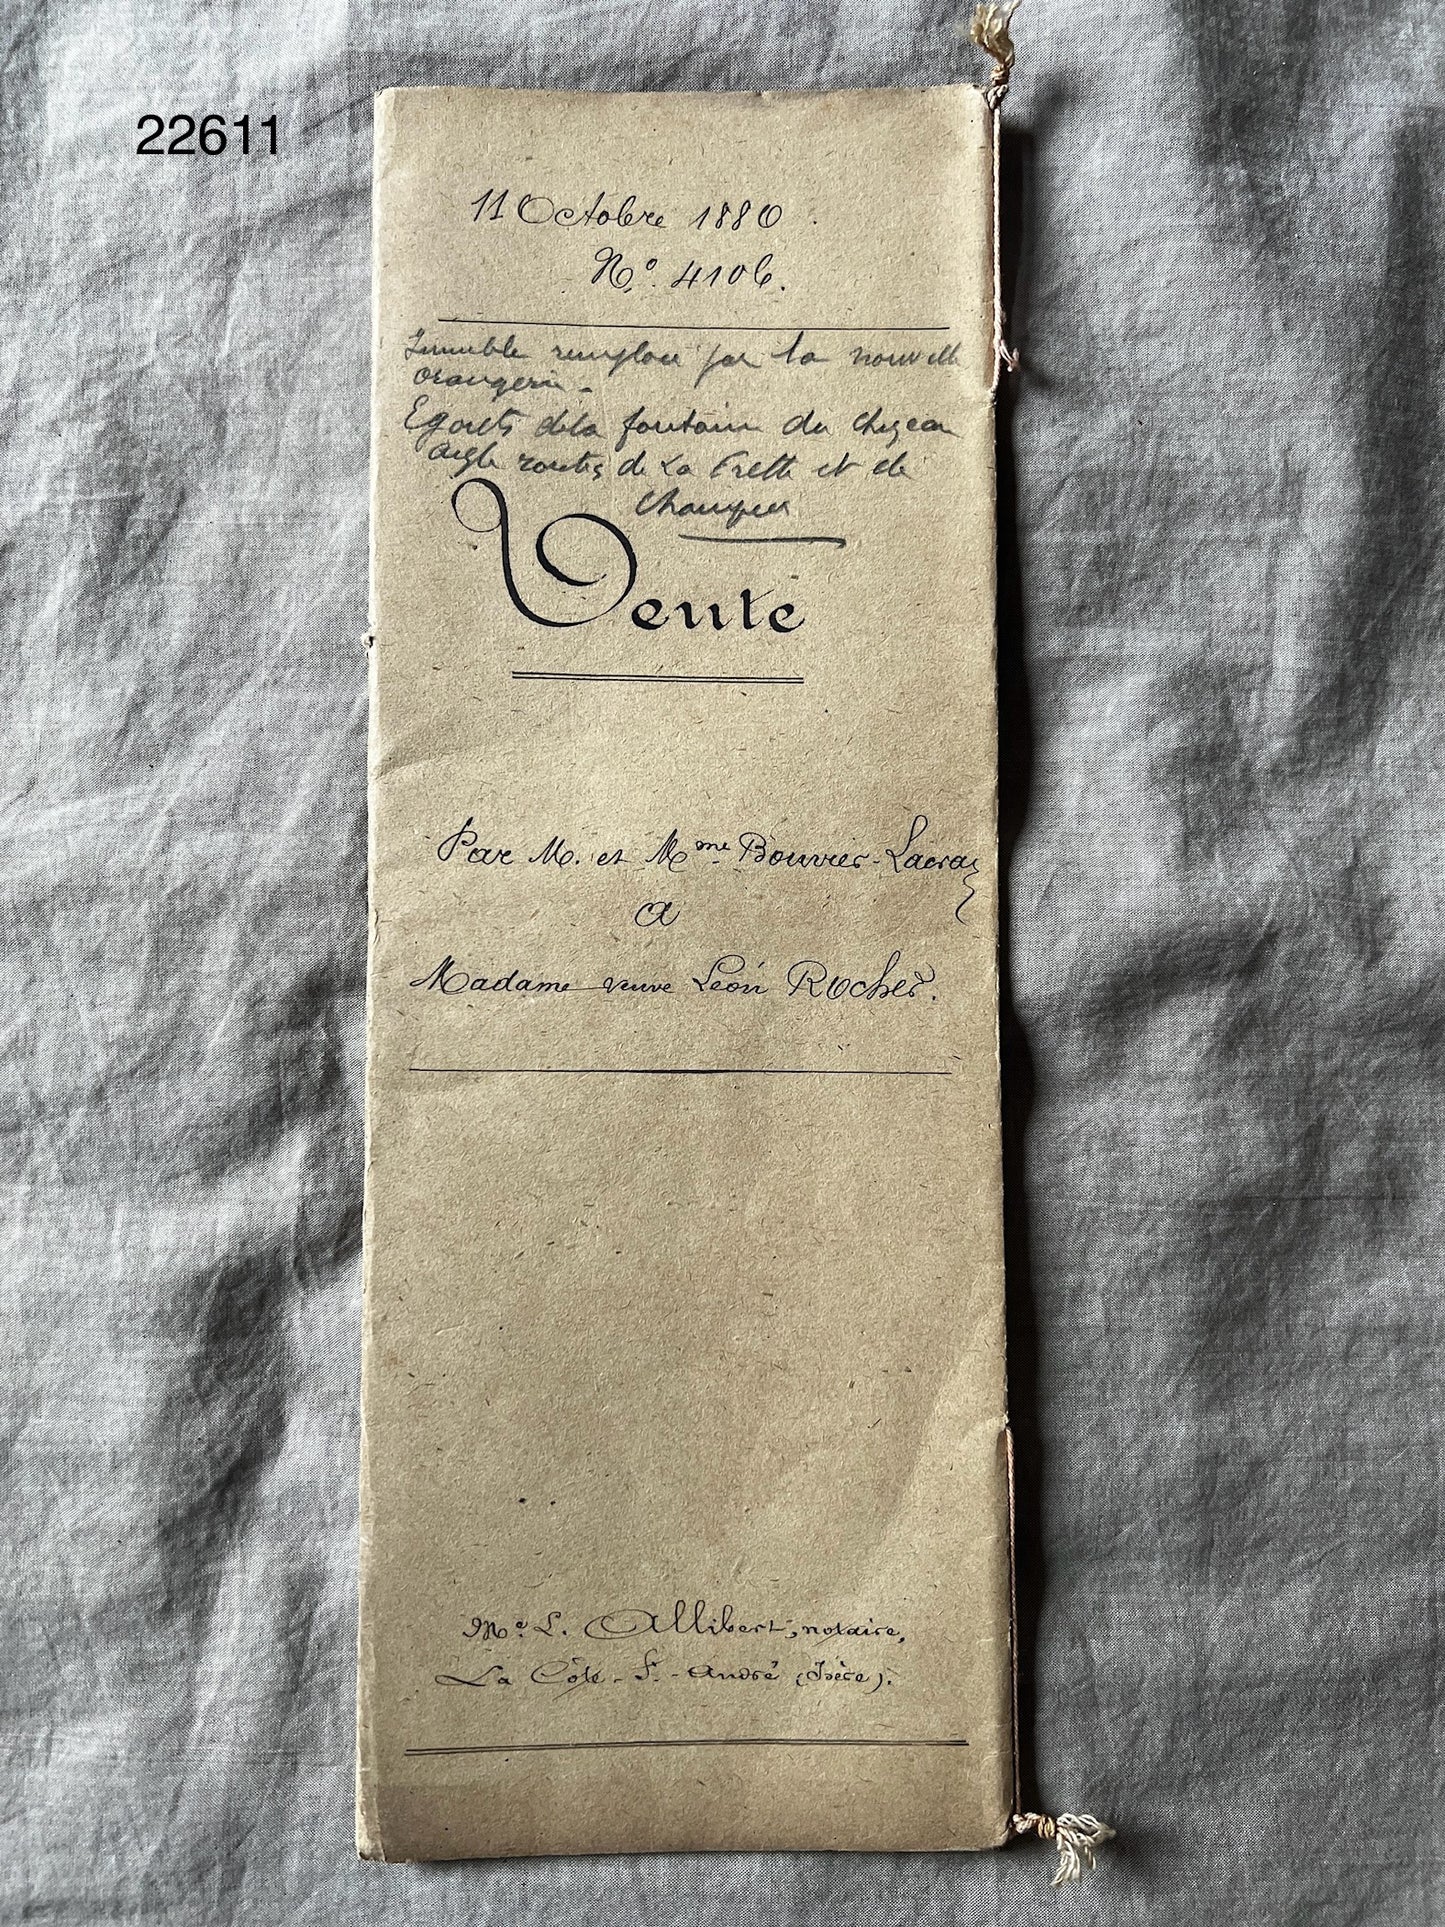 22611
11 Octobre 1880.
N.º 4106.
Immeuble remplacé par la nouvelle
orangerie -
Egouts de la fontaine du
angle routes de La Frette et de
Champier
Vente
Par M. et Mme Bouvier-Lacroix
à
Madame veuve Léon Rocher.
Me. L. Allibert, notaire,
La Côte-St.-André (Isère).